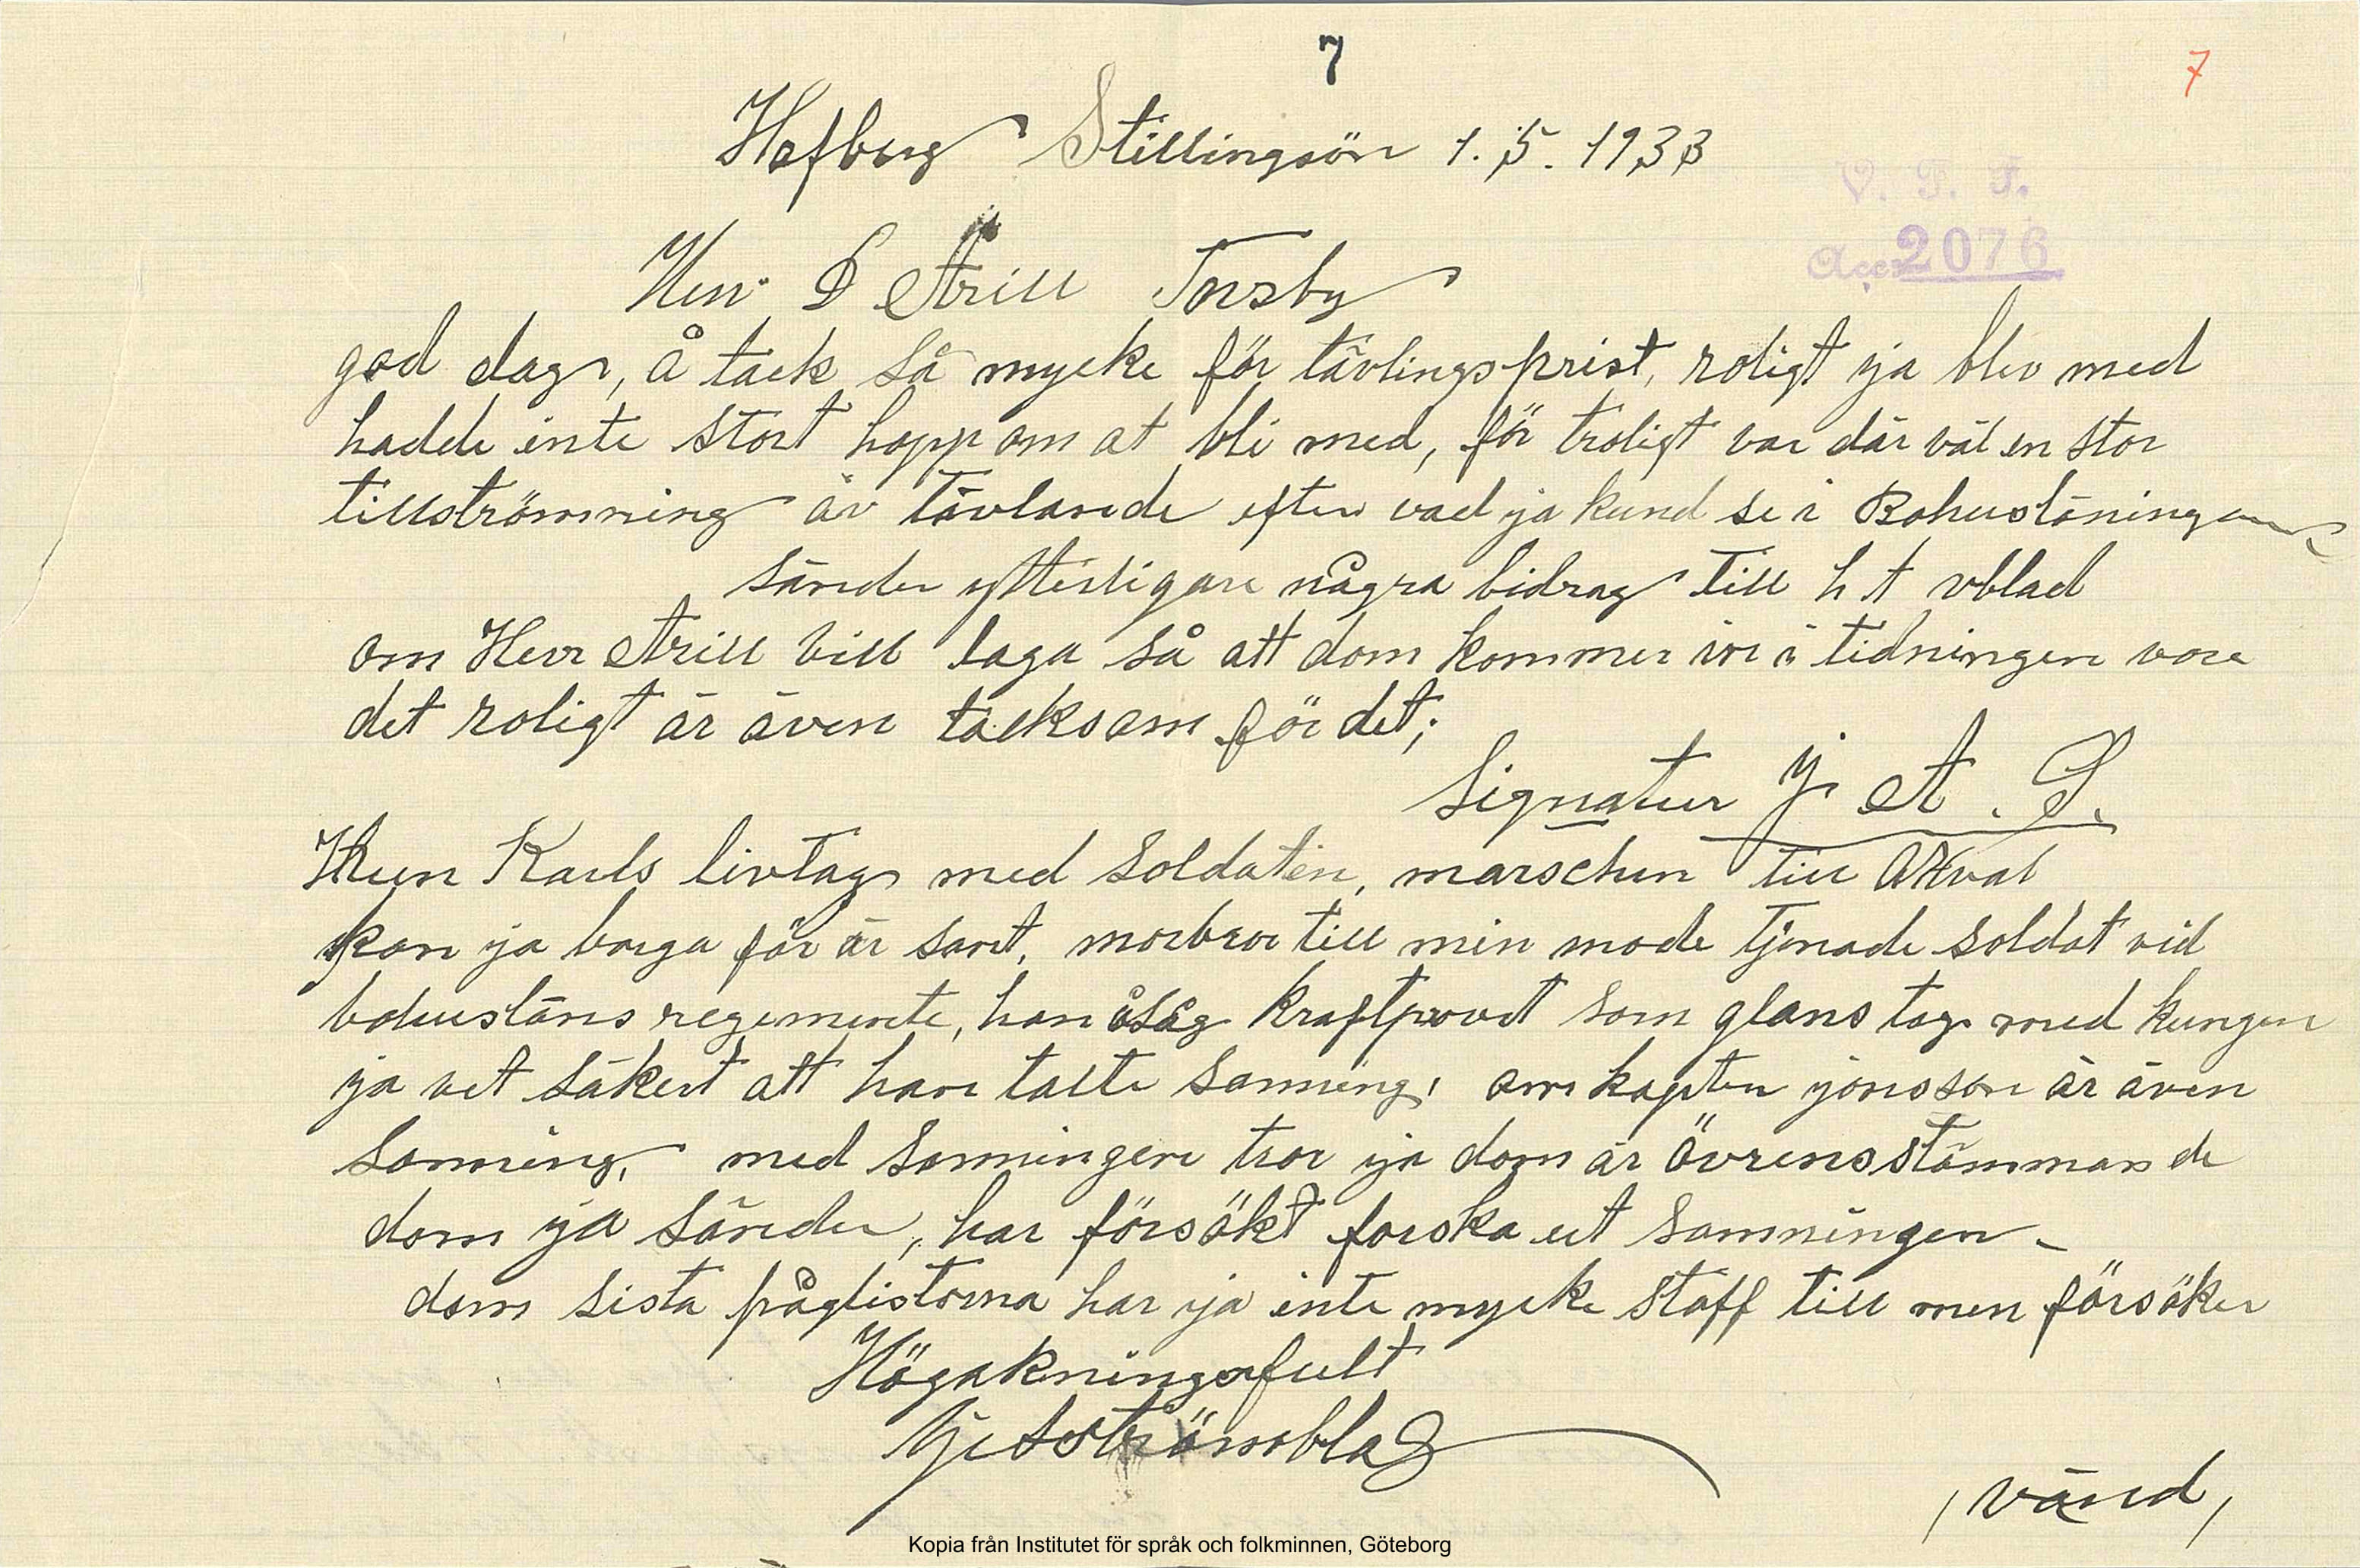 7
7
Hafberg Stillingsön 1.5.1933
V. F. F.
Acc 2076
Herr D Arill Torsby
god dag, å tack så mycke för tävlingsprist, roligt ja blev med
hadde inte stort hopp om at bli med, för troligt var där väl en stor
tillströmning äv tävlande efter vad ja kund se i Bohusläningen
sänder ytterligare några bidrag till h t vblad
om Herr Arill vill laga så att dom kommer in i tidningen vore
det roligt är även tacksam för det;
Signatur J A S.
Kun Karls livtag med soldaten, marschen till
kan ja borga för är sant, morbror till min mode tjenade soldat vid
bohusläns regemente, han åsåg kraftprovet som glans tog med kungen
ja vet säkert att han talte sanning, om kapten jonsson är även
sanning, med sanningen tror ja dom är övrensstämmande
dom ja sänder, har försökt forska ut sanningen -
dom sista fråglistorna har ja inte mycke stoff till men försöker
Högakningsfult
, vänd,
Kopia från Institutet för språk och folkminnen, Göteborg